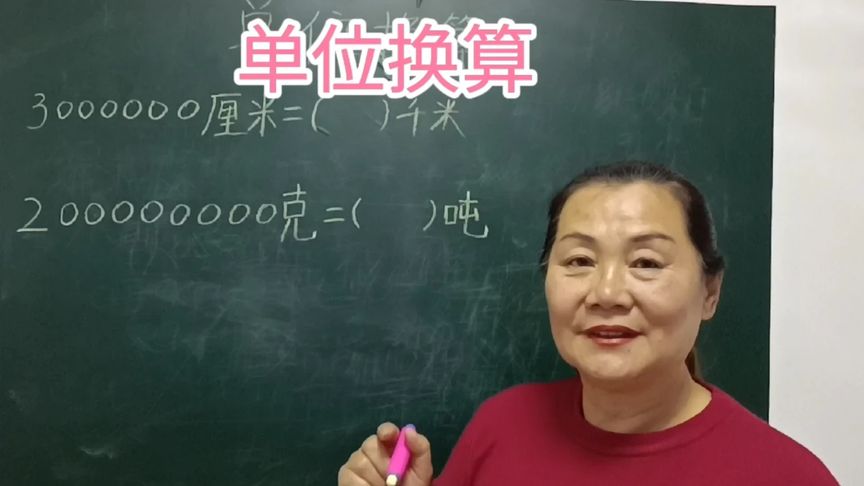 单位换算
3000000厘米=( )千米
200000000克=( )吨